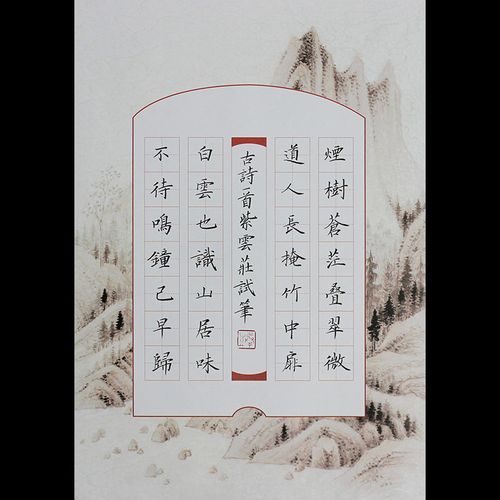 煙樹蒼茫疊翠微
道人長掩竹中扉
古詩一首紫雲莊試筆
白雲也識山居味
不待鳴鐘已早歸